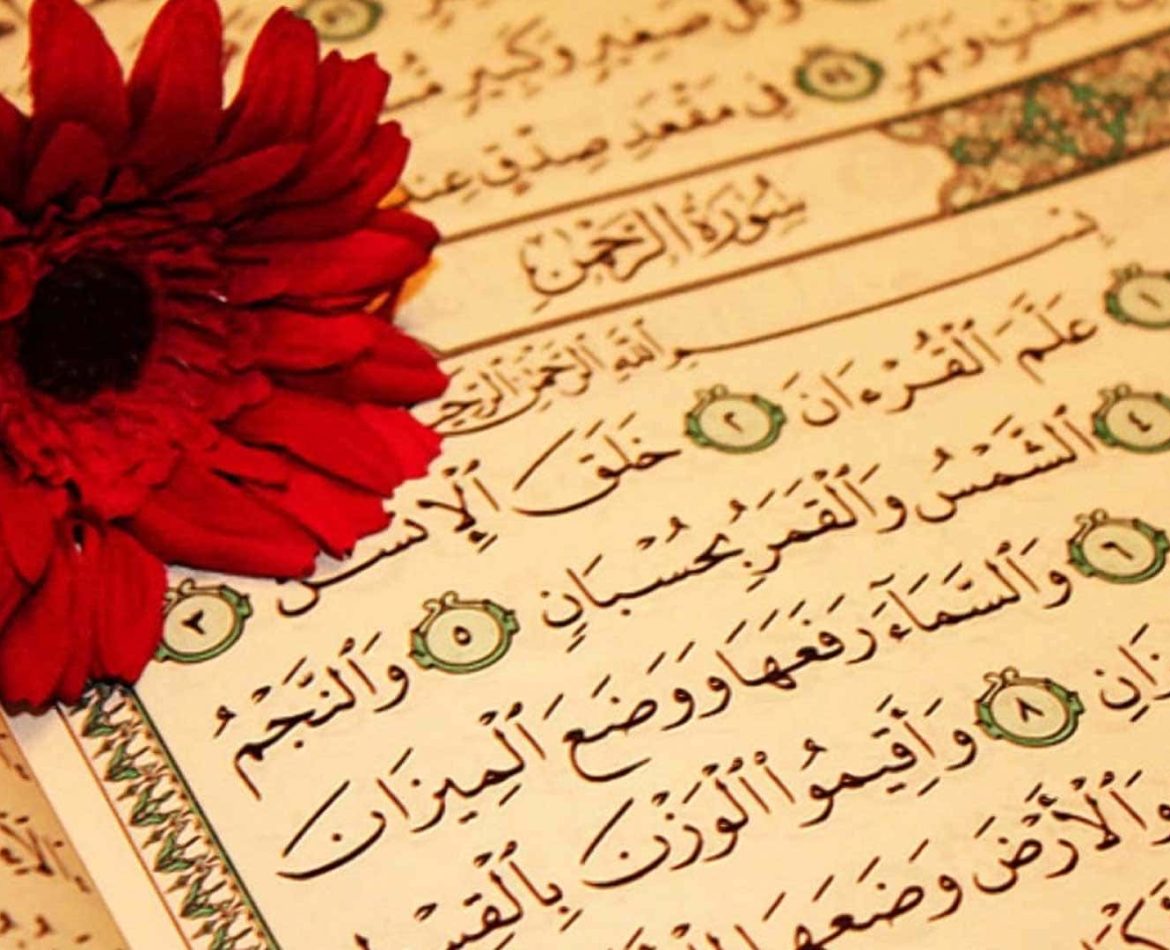 وكل صغير وكبير
في مقعد صدق عند
سُورَةُ الرَّحْمَٰن
بِسْمِ اللَّهِ الرَّحْمَٰنِ الرَّحِيمِ
١ عَلَّمَ ٱلْقُرْءَانَ ٢ خَلَقَ ٱلْإِنسَٰنَ ٣
٤ ٱلشَّمْسُ وَٱلْقَمَرُ بِحُسْبَانٍ ٥ وَٱلنَّجْمُ
٦ وَٱلسَّمَآءَ رَفَعَهَا وَوَضَعَ ٱلْمِيزَانَ
٨ وَأَقِيمُوا۟ ٱلْوَزْنَ بِٱلْقِسْ
وَٱلْأَرْضَ وَضَعَهَا